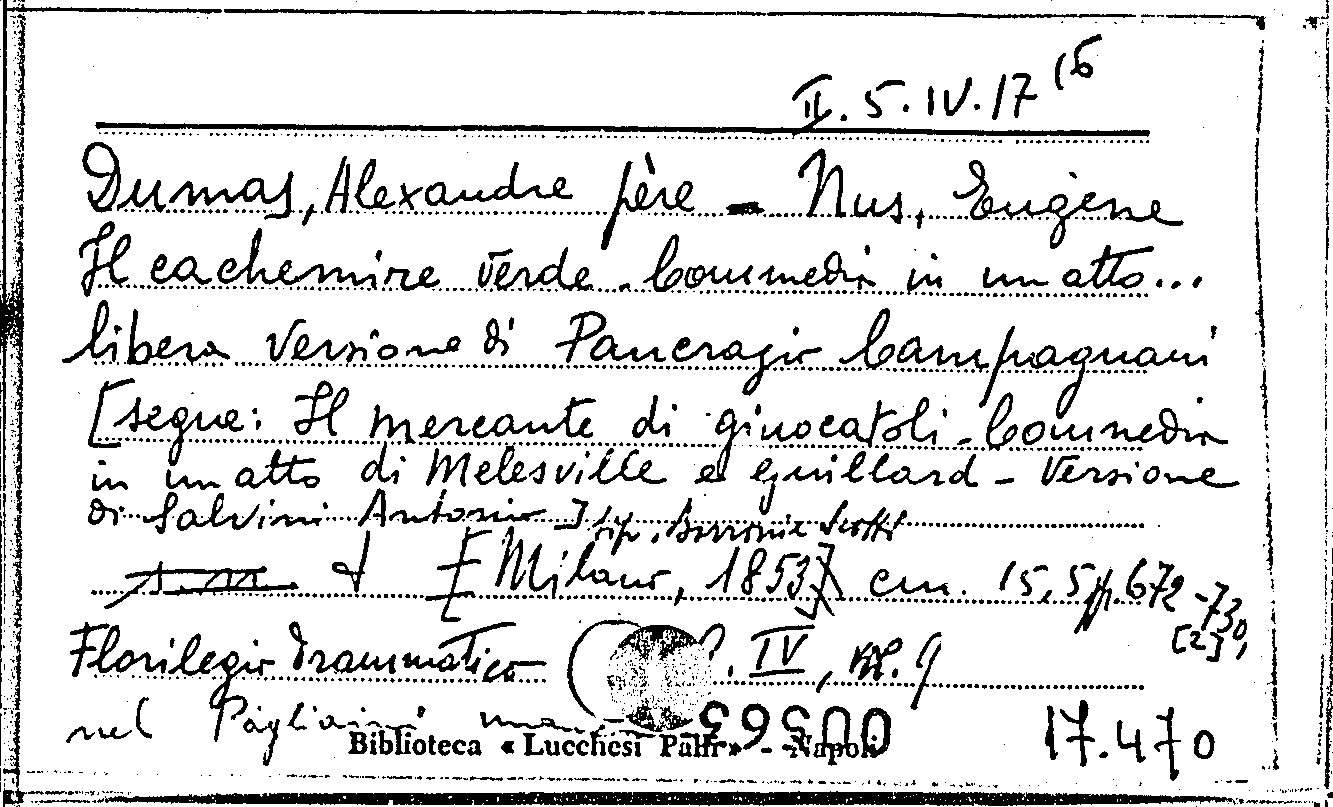 II. 5. IV. 17 (6
Dumas, Alexandre père - Nus, Eugène
Il cachemire verde. Commedia in un atto...
libera versione di Pancrazio Campagnani
[segue: Il mercante di giuocatoli. Commedia
in un atto di Melesville e Guillard - Versione
di Salvini Antonio] tip. Borroni e Scotti
s.n. [Milano, 1853] cm. 15,5 pp. 672-730,
[2]
Florilegio drammatico IV, 9
nel
00363
17.470
Biblioteca « Lucchesi Palli » - Napoli